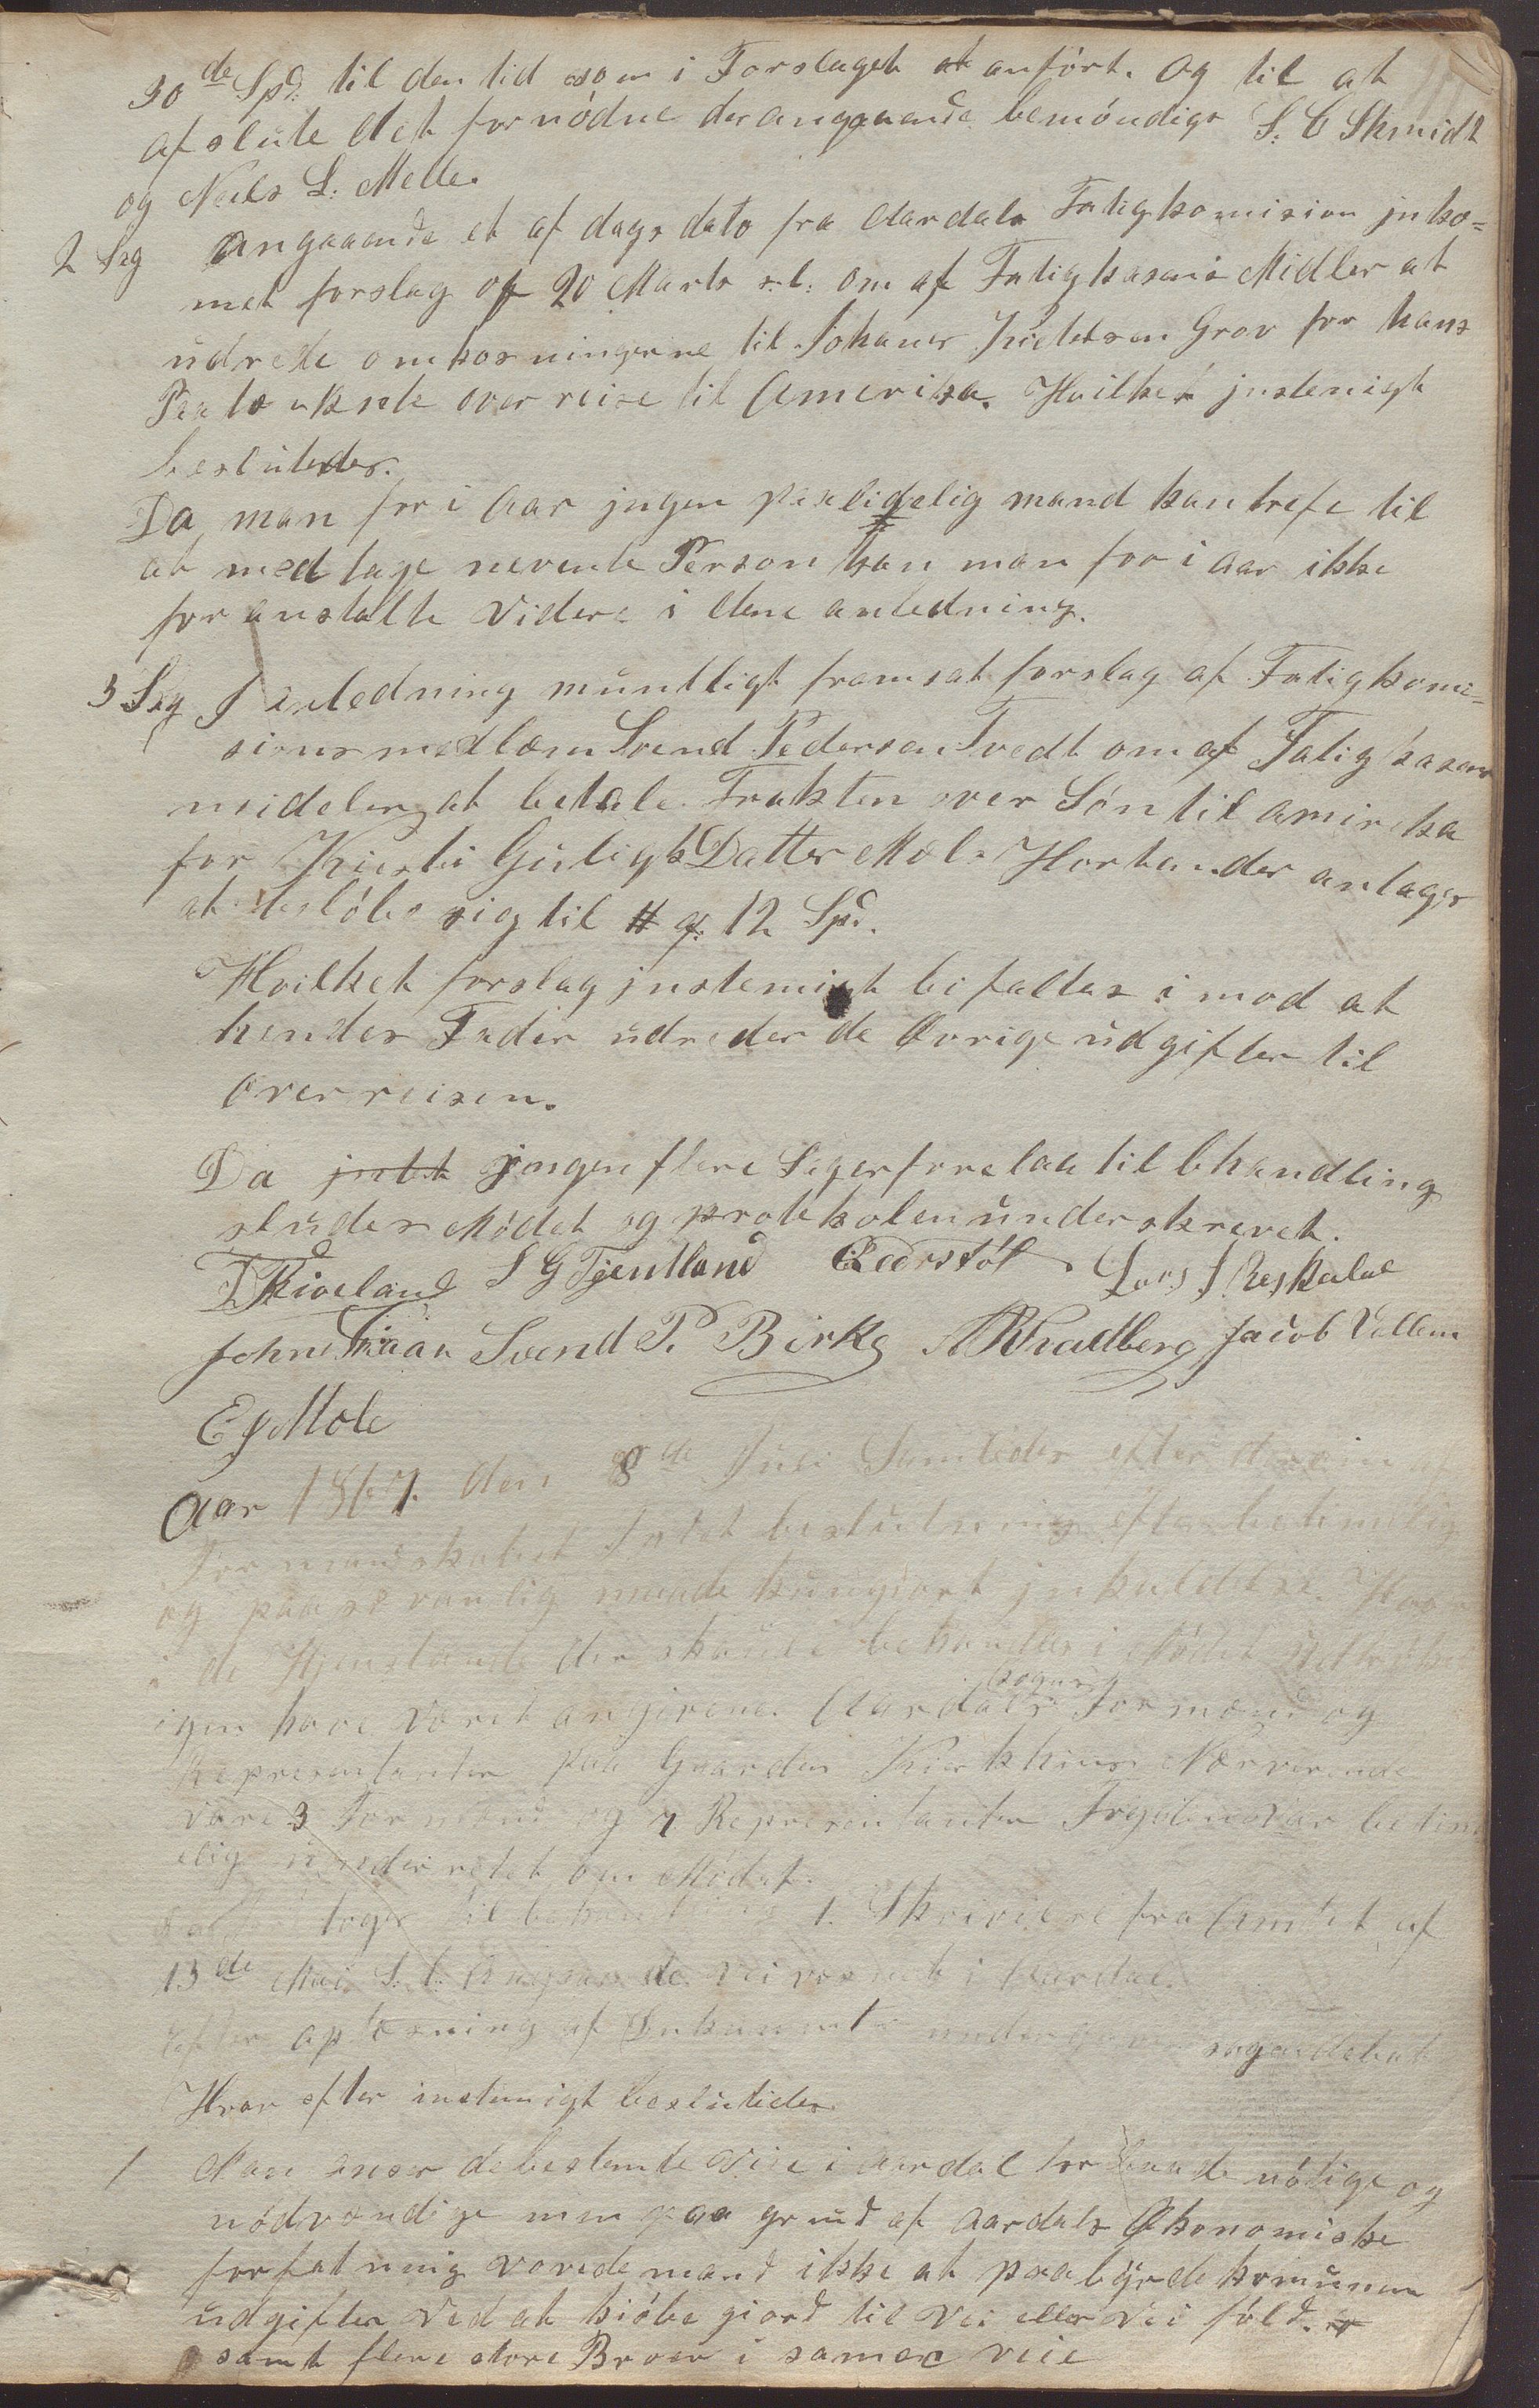 30de Spd: til den tid som i Forslaget at anført. Og til at
afslute det fornødne derangaaende bemøndiges S. C Skmidt
og Neels L. Melle.
2 Sag Angaaende et af dags dato fra Aardals Fatigkomision jnko=
met forslag of 20 Marts s.l. om af Fatigkasens Midler at
udrede omkosningerne til Johanes Knedtsen Grov for hans
Paatænkte over reise til Amerika. Hvilket jnstemigt
beslutedes.
Da man for i Aar jngen paalidelig mand kan trefe til
at med tage nevente Person kan man for i aar ikke
for anstalte Videre i dene anledning.
3 Sag I anledning muntligt fremsat forslag af Fatigkomi=
sionsmedlem Svend Pedersen Tvedt om af Fatigkasens
meideler at betale Frakten over Søn til amireka
for Kiersti Gutigks Datter Mæle Hvortander antages
at beløbe sig til # g: 12 Spd.
Hvilket forslag jnstemigt bifaldes imod at
hendes Fader udreder de Øvrige udgifter til
overreisen.
Da jntet jngen flere Sager forelaa til bhandling
sluder Mødet og protkolen underskrevet.
T Kiveland S G Tjentland Lars J. Reskedal
John Svend P. Birke Jacob Vellem
E J Mole
Aar 1867. den 8de Juli Samledes efter
Formandskabet Fatet beslutning efter betimelig
og paa sevanlig maade kungiort jnkaldelse. Hvor
i de Gjenstande der skulde behandles i Mødet
igen have Været angivene. Aardals sogns Formænd og
Representanter paa Gaarden Kirkhus. Nærverende
vare 3 Formænd og 7 Representanter Fogden Var betim
elig underretet om Mødet.
toges til behandling 1. Skrivelse fra Amtet af
13de Mai S. l. Angaaende veivæsnet i Aardal.
Efter oplæsning af Dokumenter sagen debat
Hvor efter instemigt beslutedes
1 Man anser de bestemte Veie i Aardal for baade nøtige og
nødvændige men paa grund af Aardals Økonomiske
forfatning vovede mand ikke at paabyrde komunen
udgifter Ved at kiøbe giord til Vei eller Vei föld.
samt flere store Broer i samme veie